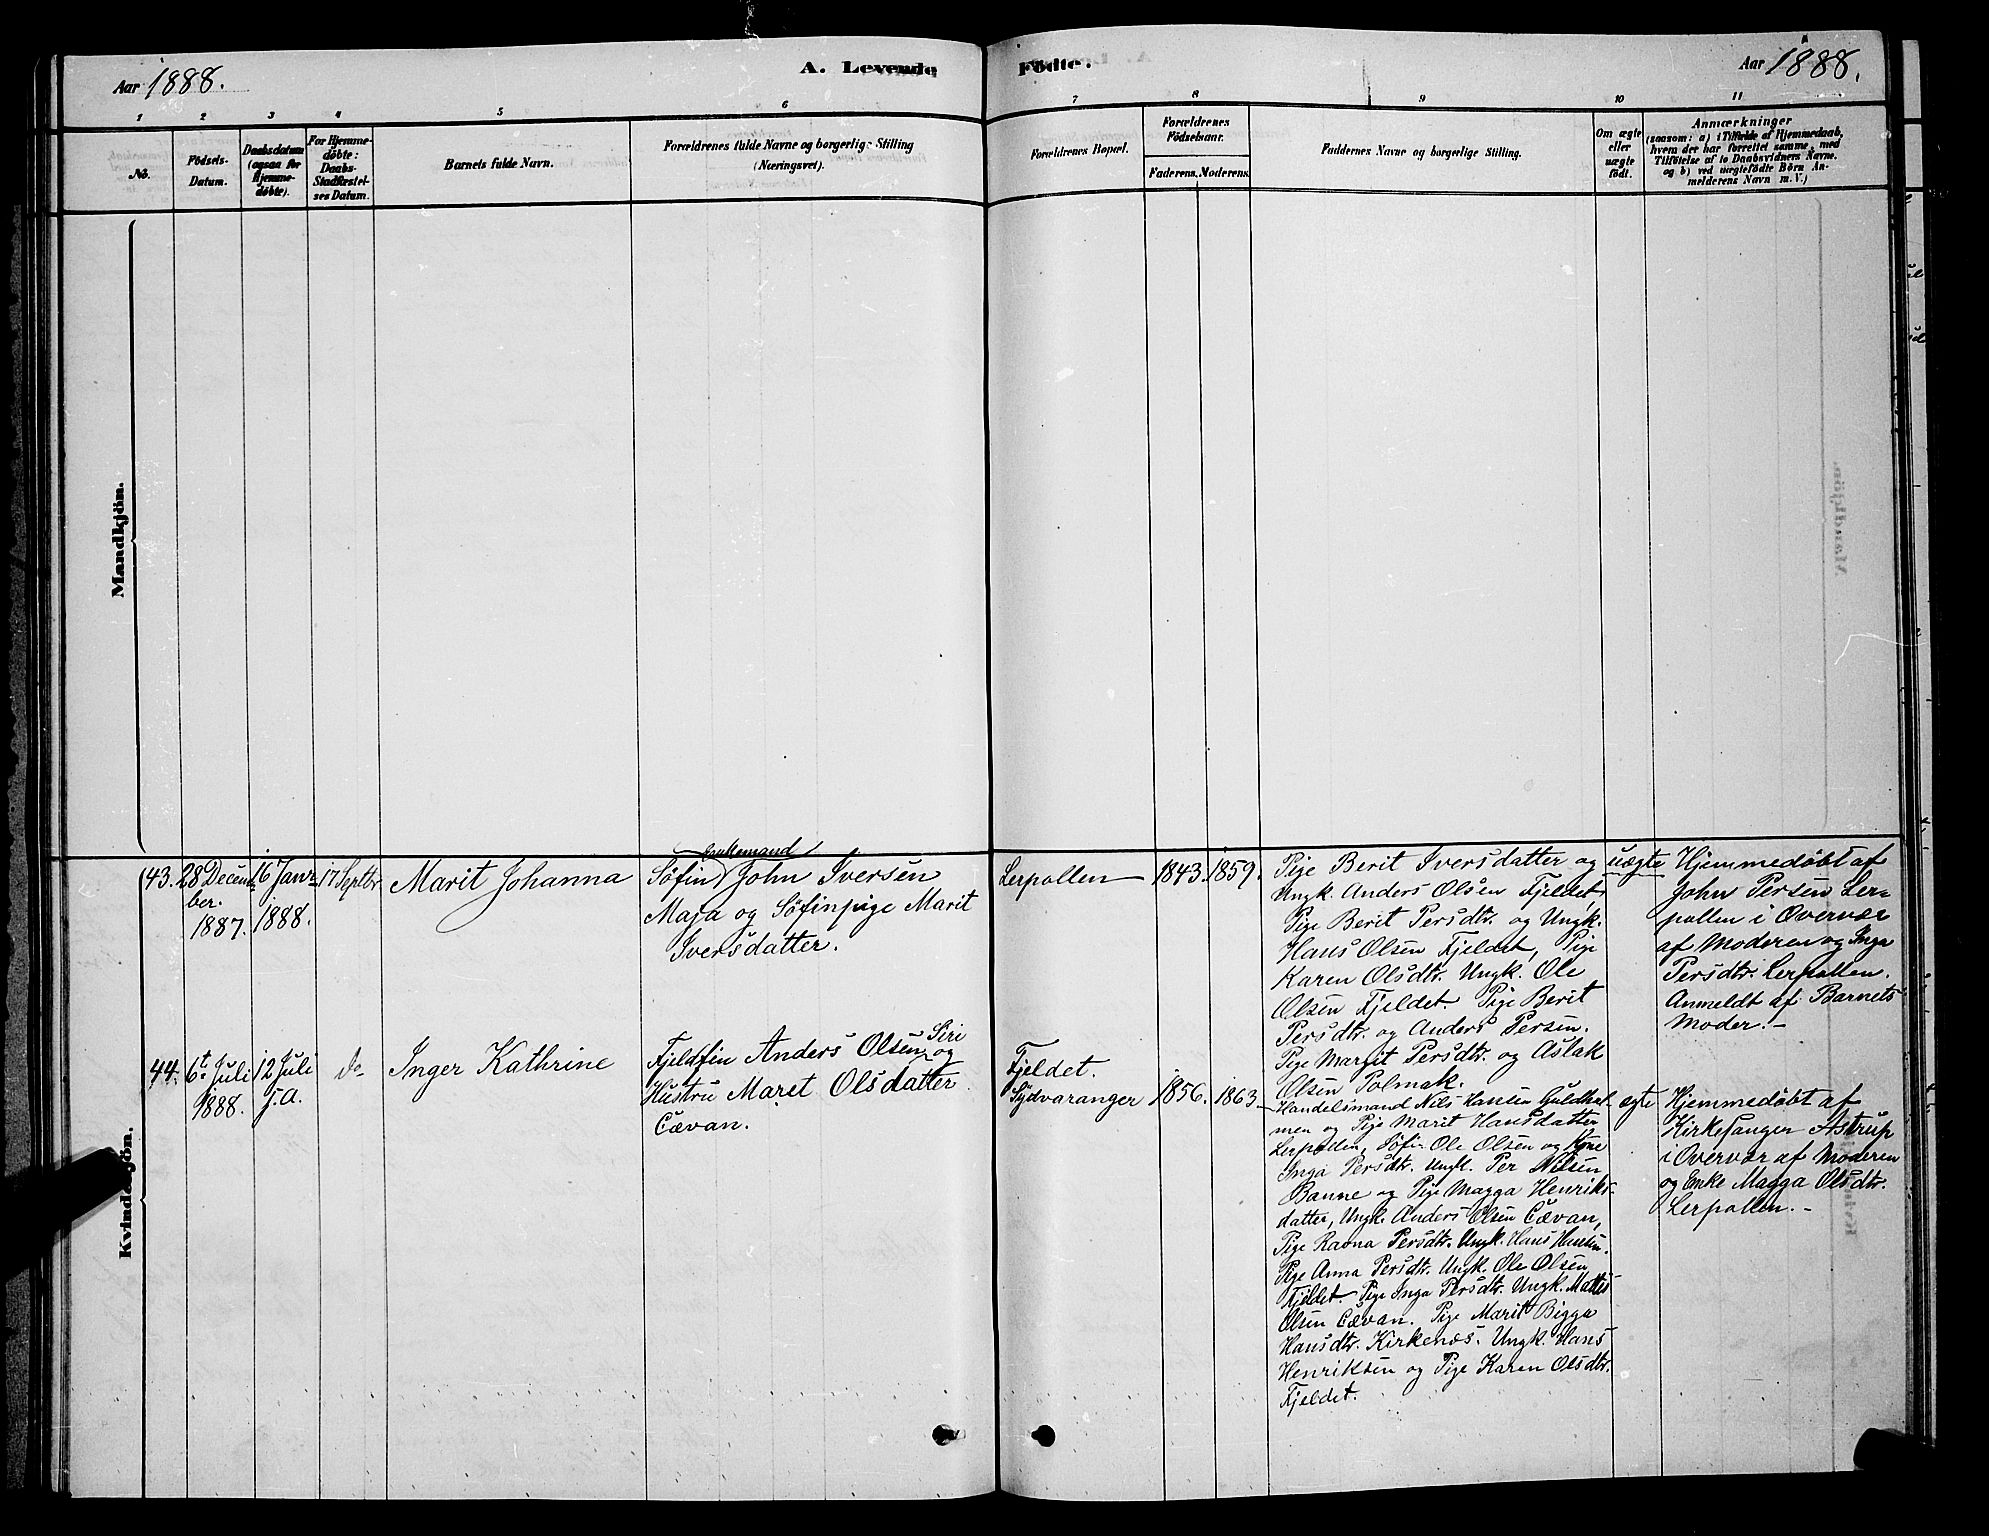 Aar 1888.
A. Levende
Födte.
Aar 1888.
1 2 3 4 5 6 7 8 9 10 11
No.
Födsels-
Datum.
Daabsdatum
(ogsaa for
Hjemme-
döbte).
For Hjemme-
döbte:
Daabs-
Stadfæstel-
ses Datum.
Barnets fulde Navn.
Forældrenes fulde Navne og borgerlige Stilling
(Næringsvei).
Forældrenes Bopæl.
Forældrenes
Födselsaar.
Faderens. Moderens.
Faddernes Navne og borgerlige Stilling.
Om ægte
eller
uægte
födt.
Anmærkninger
(saasom: a) i Tilfælde af Hjemmedaab,
hvem der har forrettet samme, med
Tilföielse af to Daabsvidners Navne.
og b) ved uægtefödte Börn An-
melderens Navn m. V.)
Mandkjön.
Kvindekjön.
43.
28 Decem-
ber.
1887.
16 Janr
1888.
17 Septbr
Marit Johanna
Enkemand
Søfin John Iversen
Maja og Søfinpige Marit
Iversdatter.
Lerpollen
1843.
1859.
Pige Berit Iversdatter og
Ungk. Anders Olsen Fjeldet,
Pige Berit Persdtr. og Ungk.
Hans Olsen Fjeldet, Pige
Karen Olsdtr. Ungk. Ole
Olsen Fjeldet. Pige Berit
Persdtr. og Anders Persen.
Pige Margit Persdtr. og Aslak
Olsen Polmak.
uægte
Hjemmedøbt af
John Persen Ler-
pollen i Overvær
af Moderen og Inga
Persdtr. Lerpollen.
Anmeldt af Barnets
Moder. –
44.
6t Juli
1888.
12 Juli
s.a.
do
Inger Kathrine
Fjeldfin Anders Olsen og
Siri
Hustru Maret Olsdatter
Cævan.
Fjeldet.
Sydvaranger
1856.
1863
Handelsmand Nils Hansen Guldhol-
men og Pige Marit Hansdatter
Lerpollen, Søfi- Ole Olsen og Kone
Inga Persdtr. Ungk. Per Nilsen
Banne og Pige Magga Henriks-
datter, Ungk. Anders Olsen Cævan,
Pige Ravna Persdtr. Ungk. Hans Hansen.
Pige Anna Persdtr. Ungk. Ole Olsen
Fjeldet. Pige Inga Persdtr. Ungk. Mattis
Olsen Cævan. Pige Marit Bigga
Hansdtr. Kirkenæs. Ungk. Hans
Henriksen og Pige Karen Olsdtr.
Fjeldet.
ægte
Hjemmedøbt af
Kirkesanger Astrup
i Overvær af Moderen
og Enke Magga Olsdtr.
Lerpollen. –